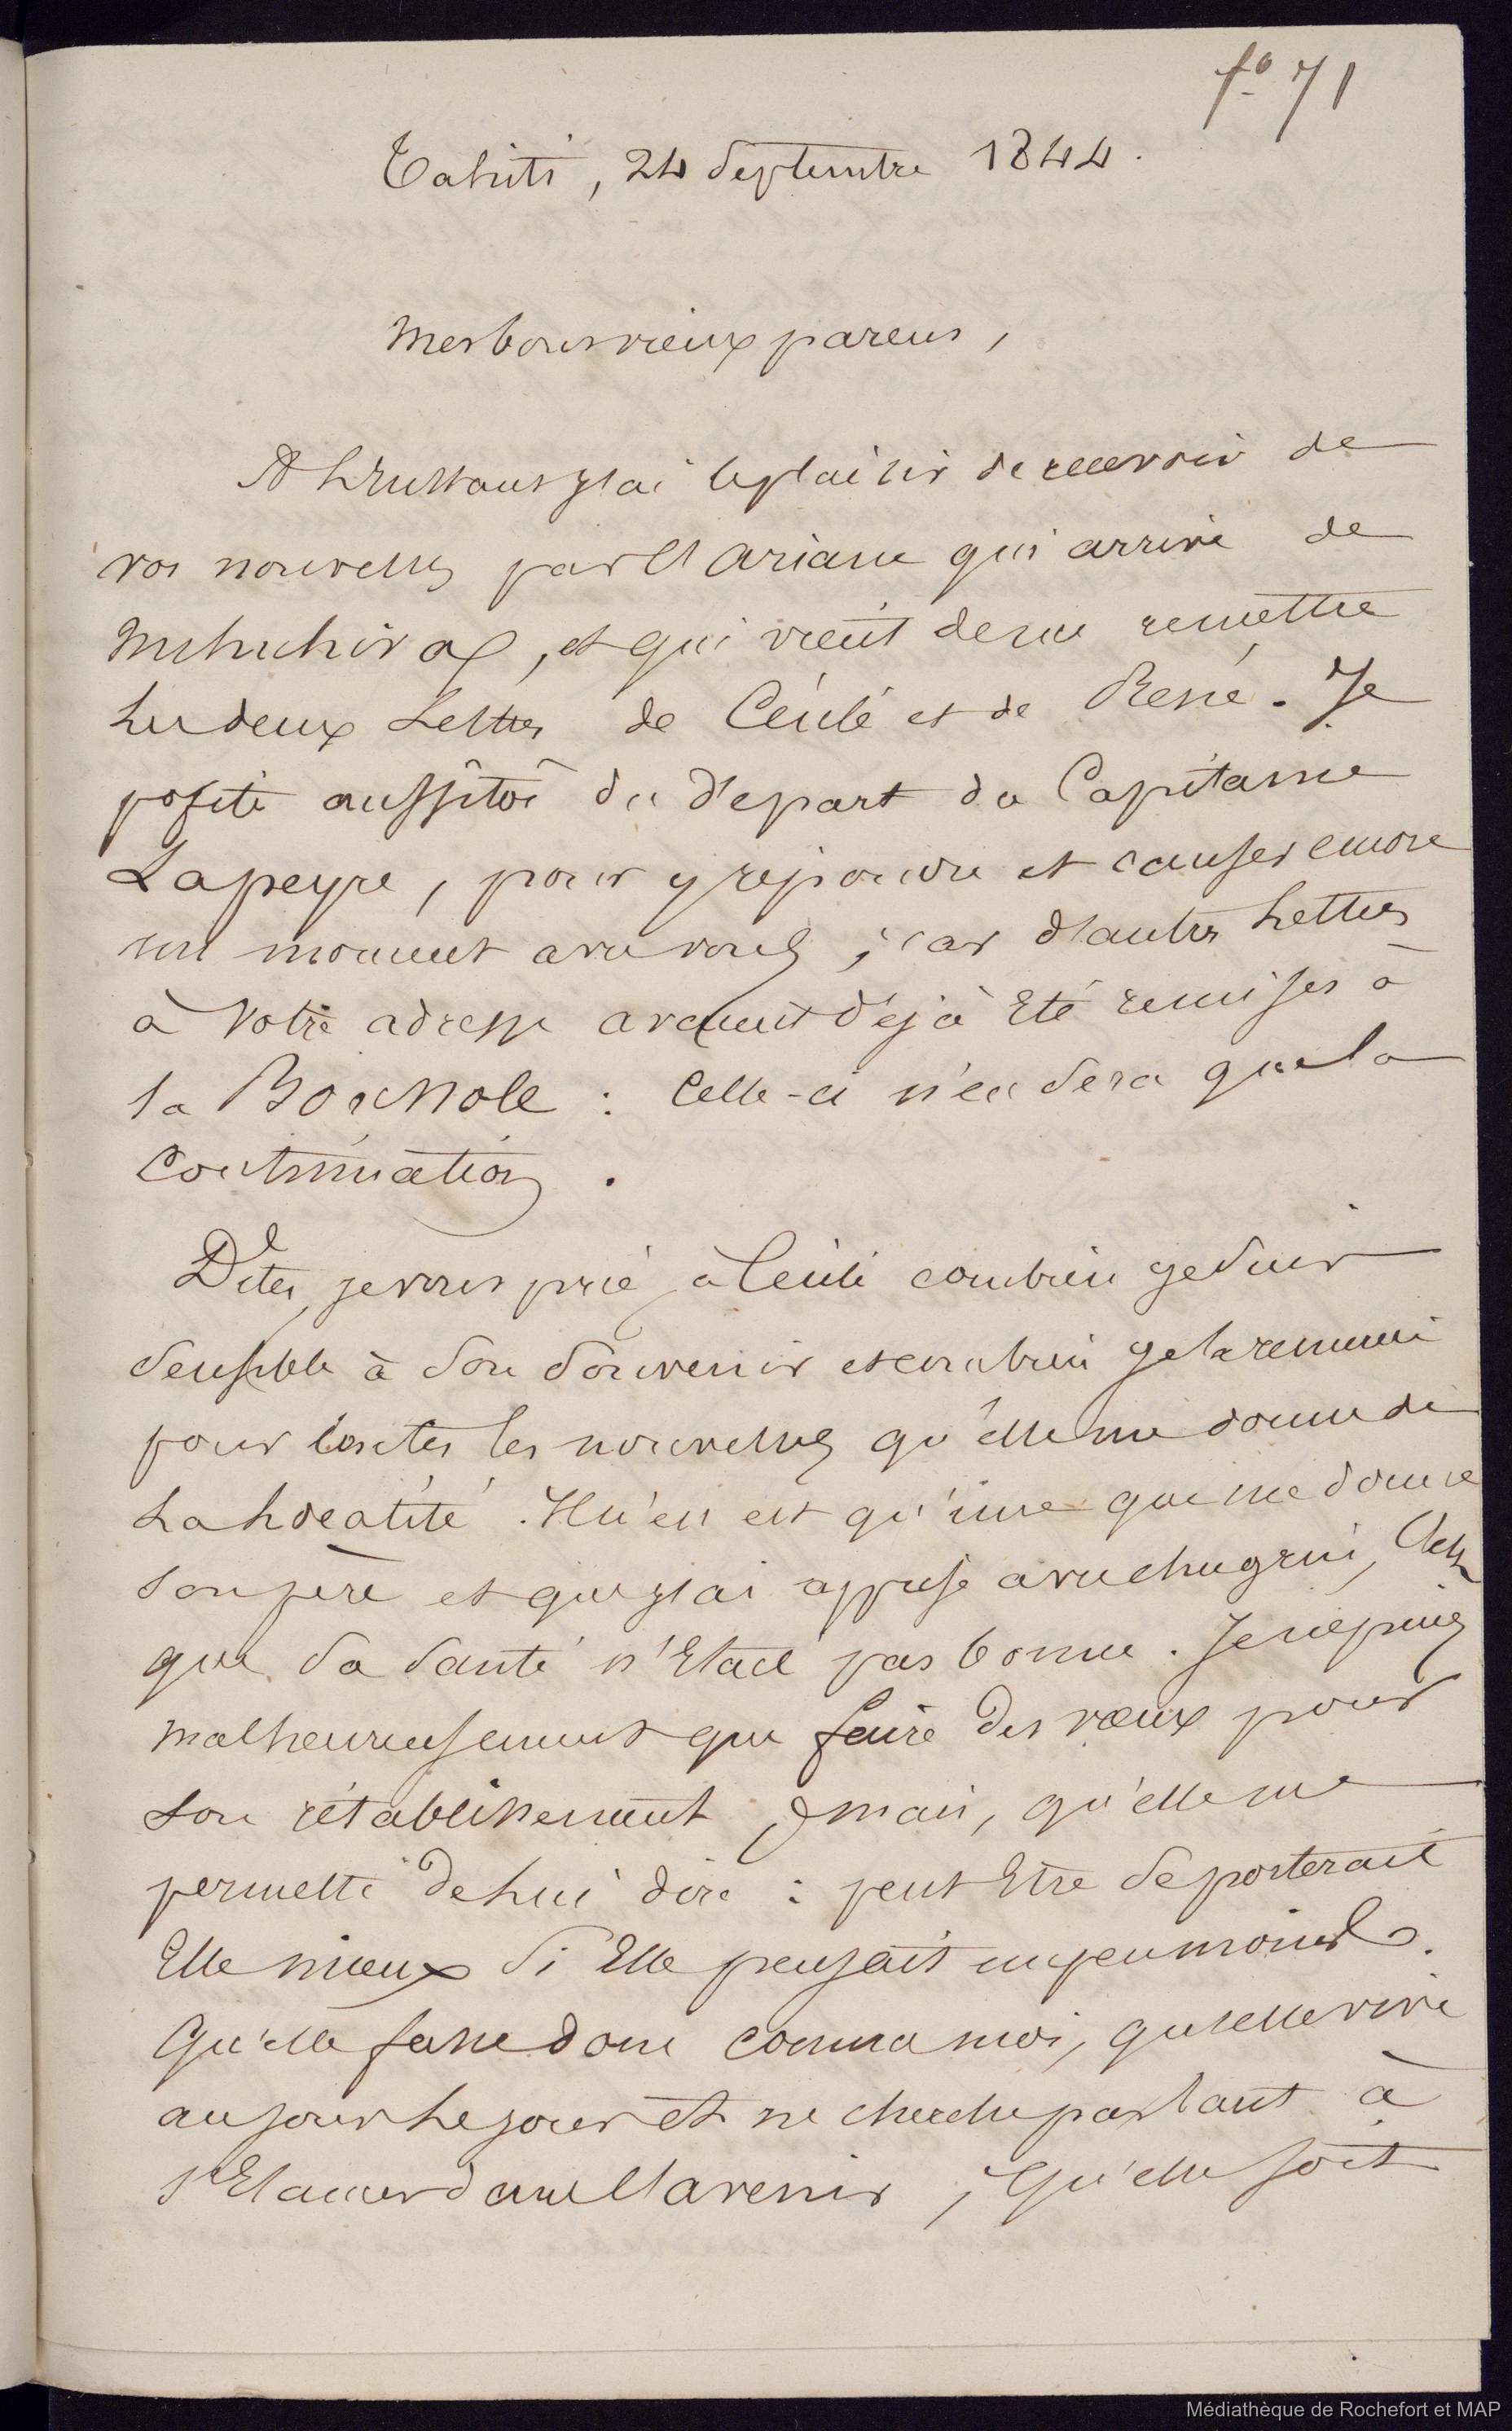 fo 71
Tahiti, 24 Septembre 1844.
Mes bons vieux parens,
A l'Instant j'ai le plaisir de recevoir de
vos nouvelles par l'Ariane qui arrive de
et qui vient de me remettre
Les deux Lettres de Cécile et de René. Je
profite aussitôt du départ du Capitaine
Lapeyre, pour y répondre et causer encore
un moment avec vous ; car d'autres Lettres
à Votre adresse avaient déjà Eté remises à
la Boussole : Celle-ci n'en sera que la
Continuation.
Dites, je vous prie, à Cécile combien je suis
sensible à son souvenir et combien je la remercie
pour toutes les nouvelles qu'elle me donne de
La localité. Il n'en est qu'une que me donne
son père et que j'ai apprise avec chagrin, C'est
que sa santé n'Etait pas bonne. Je ne puis
malheureusement que faire des vœux pour
son rétablissement, mais, qu'elle me
permette de lui dire : peut Etre se porterait
Elle mieux si Elle pensait un peu moins.
Qu'elle fasse donc comme moi, qu'elle vive
au jour Le jour et ne cherche pas tant à
s'Elancer dans l'avenir ; Qu'elle soit
Médiathèque de Rochefort et MAP